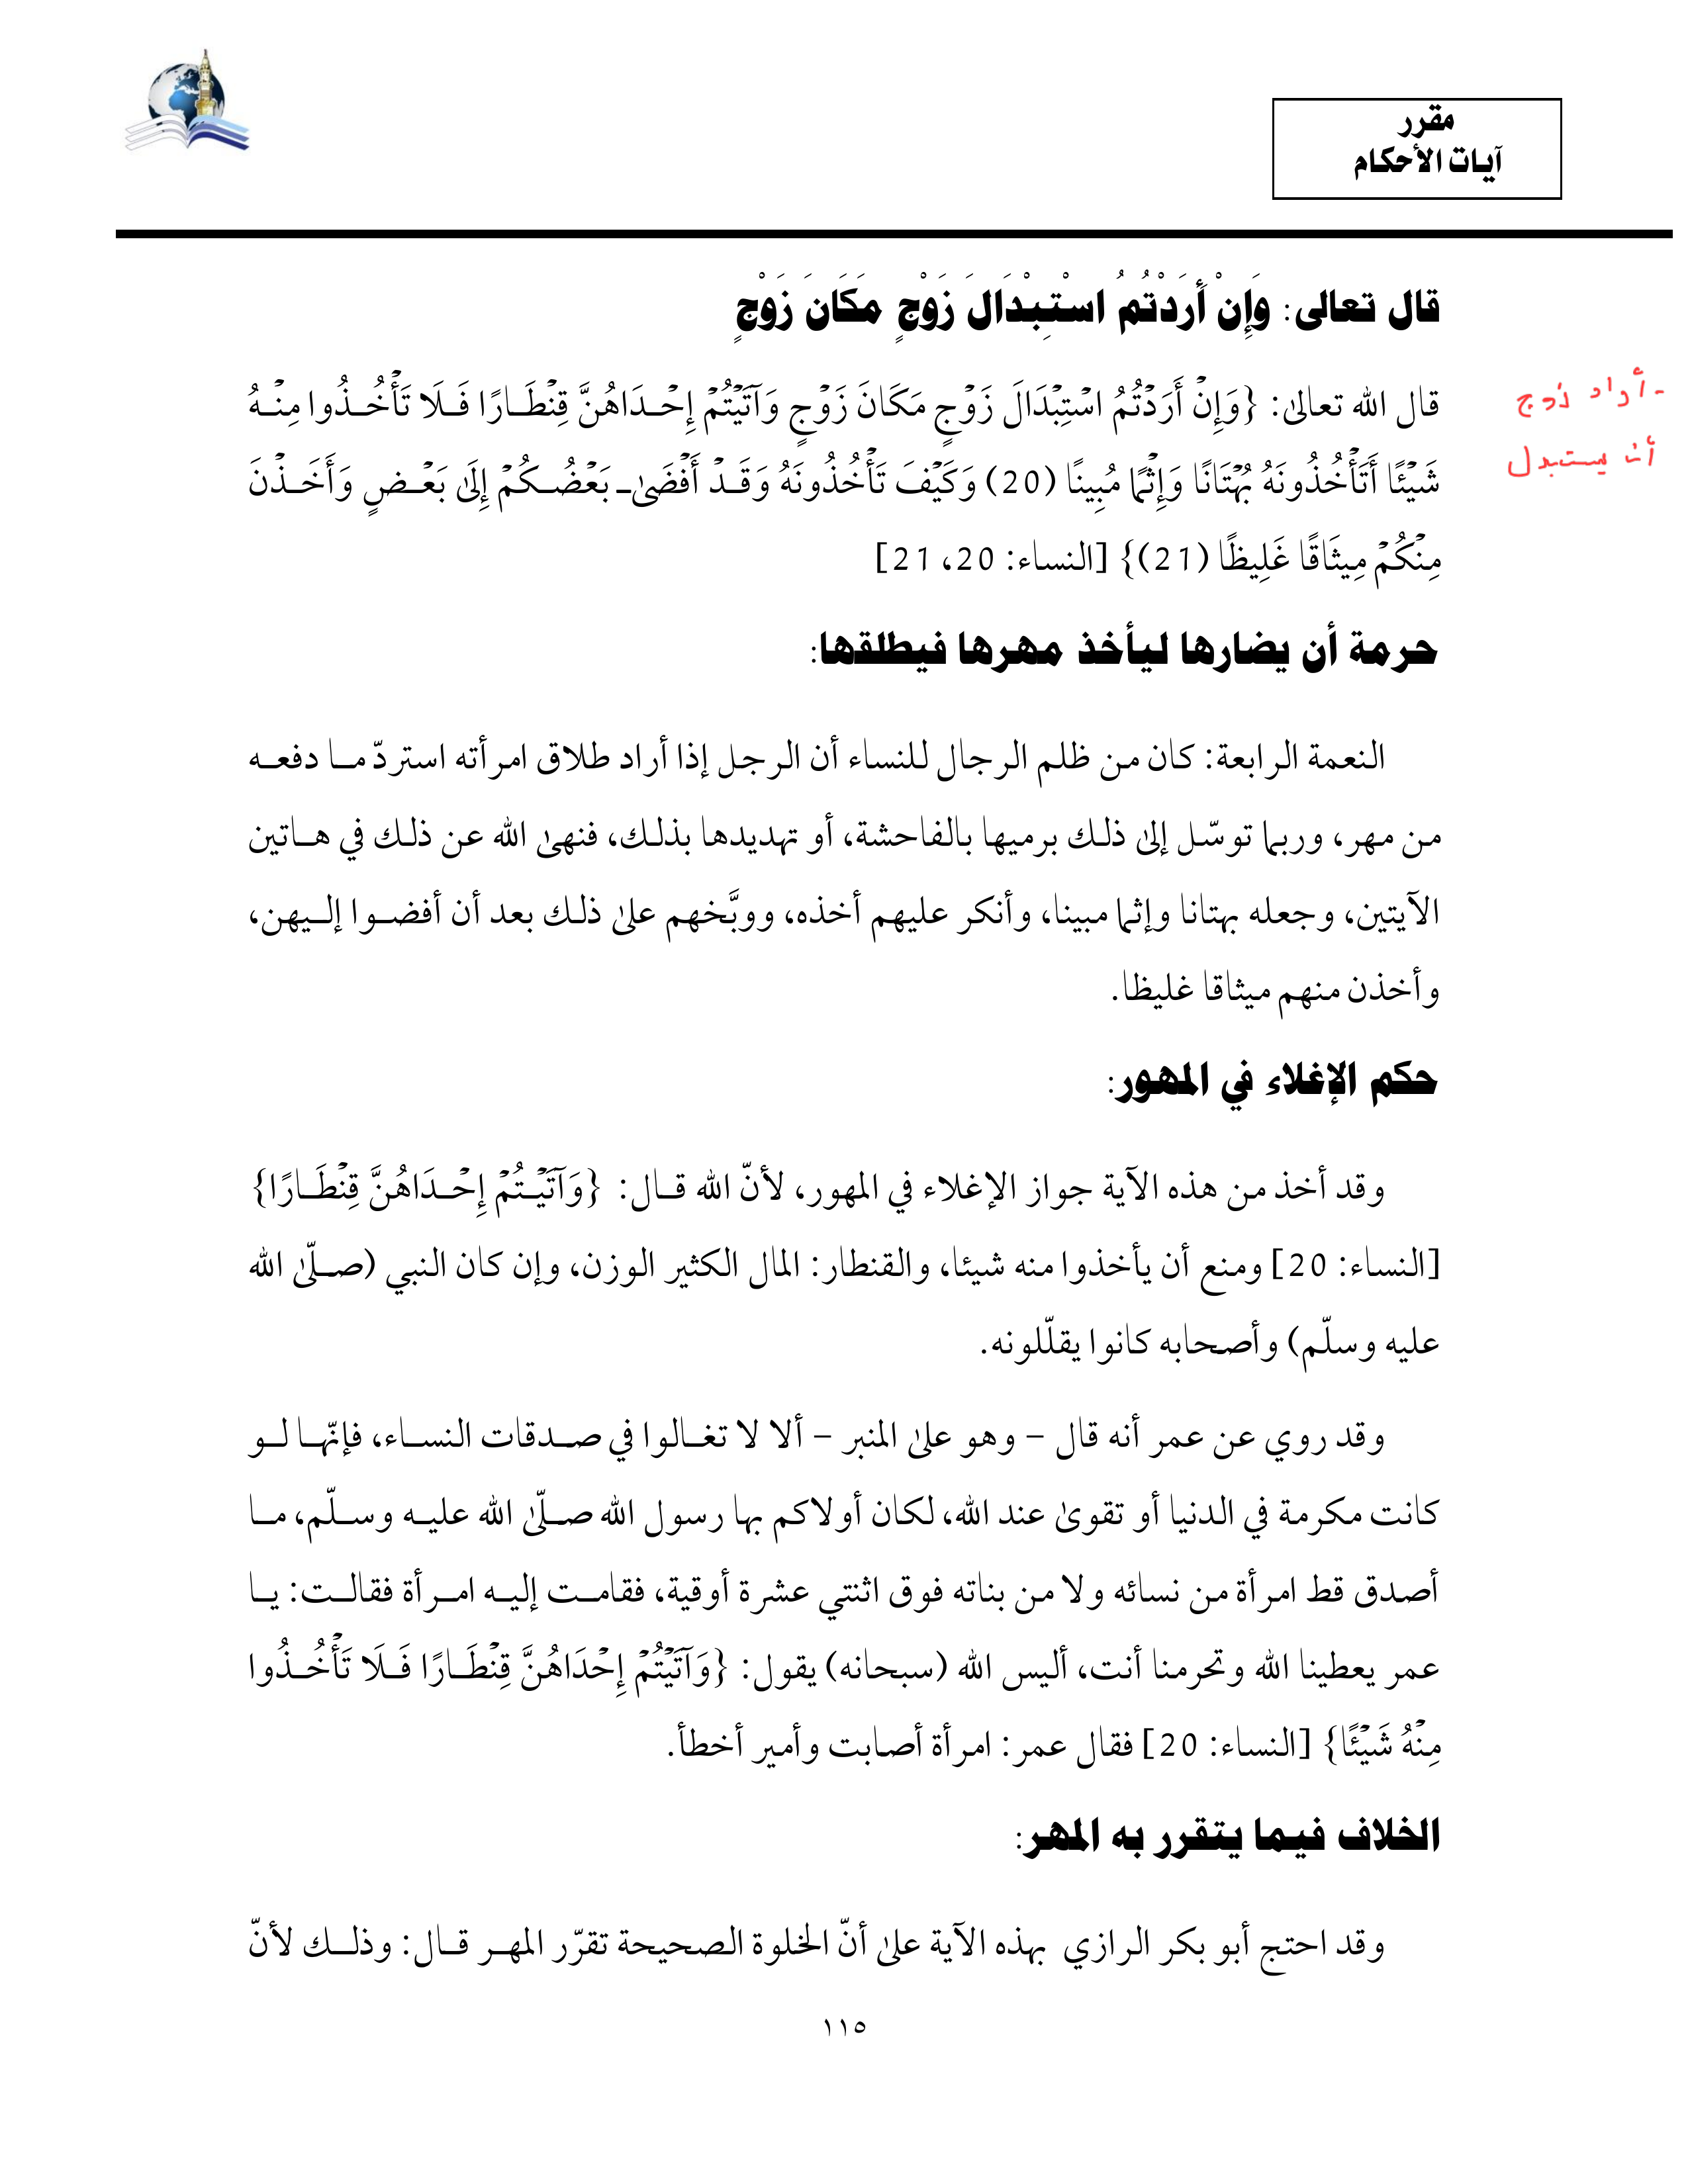 مقرر
آيات الأحكام
قال تعالى: وَإِنْ أَرَدْتُمُ اسْتِبْدَالَ زَوْجٍ مَكَانَ زَوْجٍ
قال الله تعالى: {وَإِنْ أَرَدْتُمُ اسْتِبْدَالَ زَوْجٍ مَكَانَ زَوْجٍ وَآتَيْتُمْ إِحْدَاهُنَّ قِنْطَارًا فَلَا تَأْخُذُوا مِنْهُ
شَيْئًا أَتَأْخُذُونَهُ بُهْتَانًا وَإِثْمًا مُبِينًا (20) وَكَيْفَ تَأْخُذُونَهُ وَقَدْ أَفْضَى بَعْضُكُمْ إِلَى بَعْضٍ وَأَخَذْنَ
مِنْكُمْ مِيثَاقًا غَلِيظًا (21)} [النساء: 20، 21]
- أراد زوج
أن يستبدل
حرمة أن يضارها ليأخذ مهرها فيطلقها:
النعمة الرابعة: كان من ظلم الرجال للنساء أن الرجل إذا أراد طلاق امرأته استردّ ما دفعه
من مهر، وربما توسّل إلى ذلك برميها بالفاحشة، أو تهديدها بذلك، فنهى الله عن ذلك في هاتين
الآيتين، وجعله بهتانا وإثما مبينا، وأنكر عليهم أخذه، ووبَّخهم على ذلك بعد أن أفضوا إليهن،
وأخذن منهم ميثاقا غليظا.
حكم الإغلاء في المهور:
وقد أخذ من هذه الآية جواز الإغلاء في المهور، لأنّ الله قال: {وَآتَيْتُمْ إِحْدَاهُنَّ قِنْطَارًا}
[النساء: 20] ومنع أن يأخذوا منه شيئا، والقنطار: المال الكثير الوزن، وإن كان النبي (صلّى الله
عليه وسلّم) وأصحابه كانوا يقلّلونه.
وقد روي عن عمر أنه قال – وهو على المنبر – ألا لا تغالوا في صدقات النساء، فإنّها لو
كانت مكرمة في الدنيا أو تقوى عند الله، لكان أولاكم بها رسول الله صلّى الله عليه وسلّم، ما
أصدق قط امرأة من نسائه ولا من بناته فوق اثنتي عشرة أوقية، فقامت إليه امرأة فقالت: يا
عمر يعطينا الله وتحرمنا أنت، أليس الله (سبحانه) يقول: {وَآتَيْتُمْ إِحْدَاهُنَّ قِنْطَارًا فَلَا تَأْخُذُوا
مِنْهُ شَيْئًا} [النساء: 20] فقال عمر: امرأة أصابت وأمير أخطأ.
الخلاف فيما يتقرر به المهر:
وقد احتج أبو بكر الرازي بهذه الآية على أنّ الخلوة الصحيحة تقرّر المهر قال: وذلك لأنّ
١١٥